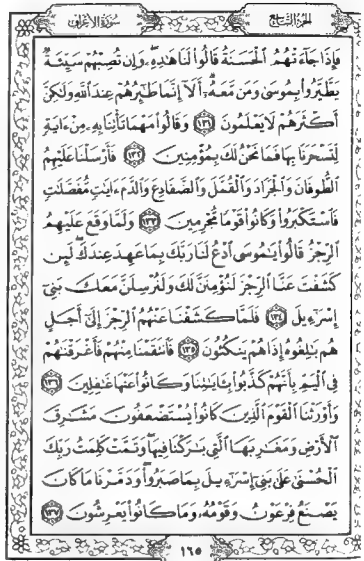 الجزء التاسع سورة الأعراف
فَإِذَا جَآءَتْهُمُ ٱلْحَسَنَةُ قَالُوا۟ لَنَا هَٰذِهِۦ وَإِن تُصِبْهُمْ سَيِّئَةٌ
يَطَّيَّرُوا۟ بِمُوسَىٰ وَمَن مَّعَهُۥٓ أَلَآ إِنَّمَا طَٰٓئِرُهُمْ عِندَ ٱللَّهِ وَلَٰكِنَّ
أَكْثَرَهُمْ لَا يَعْلَمُونَ ١٣١ وَقَالُوا۟ مَهْمَا تَأْتِنَا بِهِۦ مِنْ ءَايَةٍ
لِّتَسْحَرَنَا بِهَا فَمَا نَحْنُ لَكَ بِمُؤْمِنِينَ ١٣٢ فَأَرْسَلْنَا عَلَيْهِمُ
ٱلطُّوفَانَ وَٱلْجَرَادَ وَٱلْقُمَّلَ وَٱلضَّفَادِعَ وَٱلدَّمَ ءَايَٰتٍ مُّفَصَّلَٰتٍ
فَٱسْتَكْبَرُوا۟ وَكَانُوا۟ قَوْمًا مُّجْرِمِينَ ١٣٣ وَلَمَّا وَقَعَ عَلَيْهِمُ
ٱلرِّجْزُ قَالُوا۟ يَٰمُوسَى ٱدْعُ لَنَا رَبَّكَ بِمَا عَهِدَ عِندَكَ لَئِن
كَشَفْتَ عَنَّا ٱلرِّجْزَ لَنُؤْمِنَنَّ لَكَ وَلَنُرْسِلَنَّ مَعَكَ بَنِىٓ
إِسْرَٰٓءِيلَ ١٣٤ فَلَمَّا كَشَفْنَا عَنْهُمُ ٱلرِّجْزَ إِلَىٰٓ أَجَلٍ
هُم بَٰلِغُوهُ إِذَا هُمْ يَنكُثُونَ ١٣٥ فَٱنتَقَمْنَا مِنْهُمْ فَأَغْرَقْنَٰهُمْ
فِى ٱلْيَمِّ بِأَنَّهُمْ كَذَّبُوا۟ بِـَٔايَٰتِنَا وَكَانُوا۟ عَنْهَا غَٰفِلِينَ ١٣٦
وَأَوْرَثْنَا ٱلْقَوْمَ ٱلَّذِينَ كَانُوا۟ يُسْتَضْعَفُونَ مَشَٰرِقَ
ٱلْأَرْضِ وَمَغَٰرِبَهَا ٱلَّتِى بَٰرَكْنَا فِيهَا وَتَمَّتْ كَلِمَتُ رَبِّكَ
ٱلْحُسْنَىٰ عَلَىٰ بَنِىٓ إِسْرَٰٓءِيلَ بِمَا صَبَرُوا۟ وَدَمَّرْنَا مَا كَانَ
يَصْنَعُ فِرْعَوْنُ وَقَوْمُهُۥ وَمَا كَانُوا۟ يَعْرِشُونَ ١٣٧
١٦٥